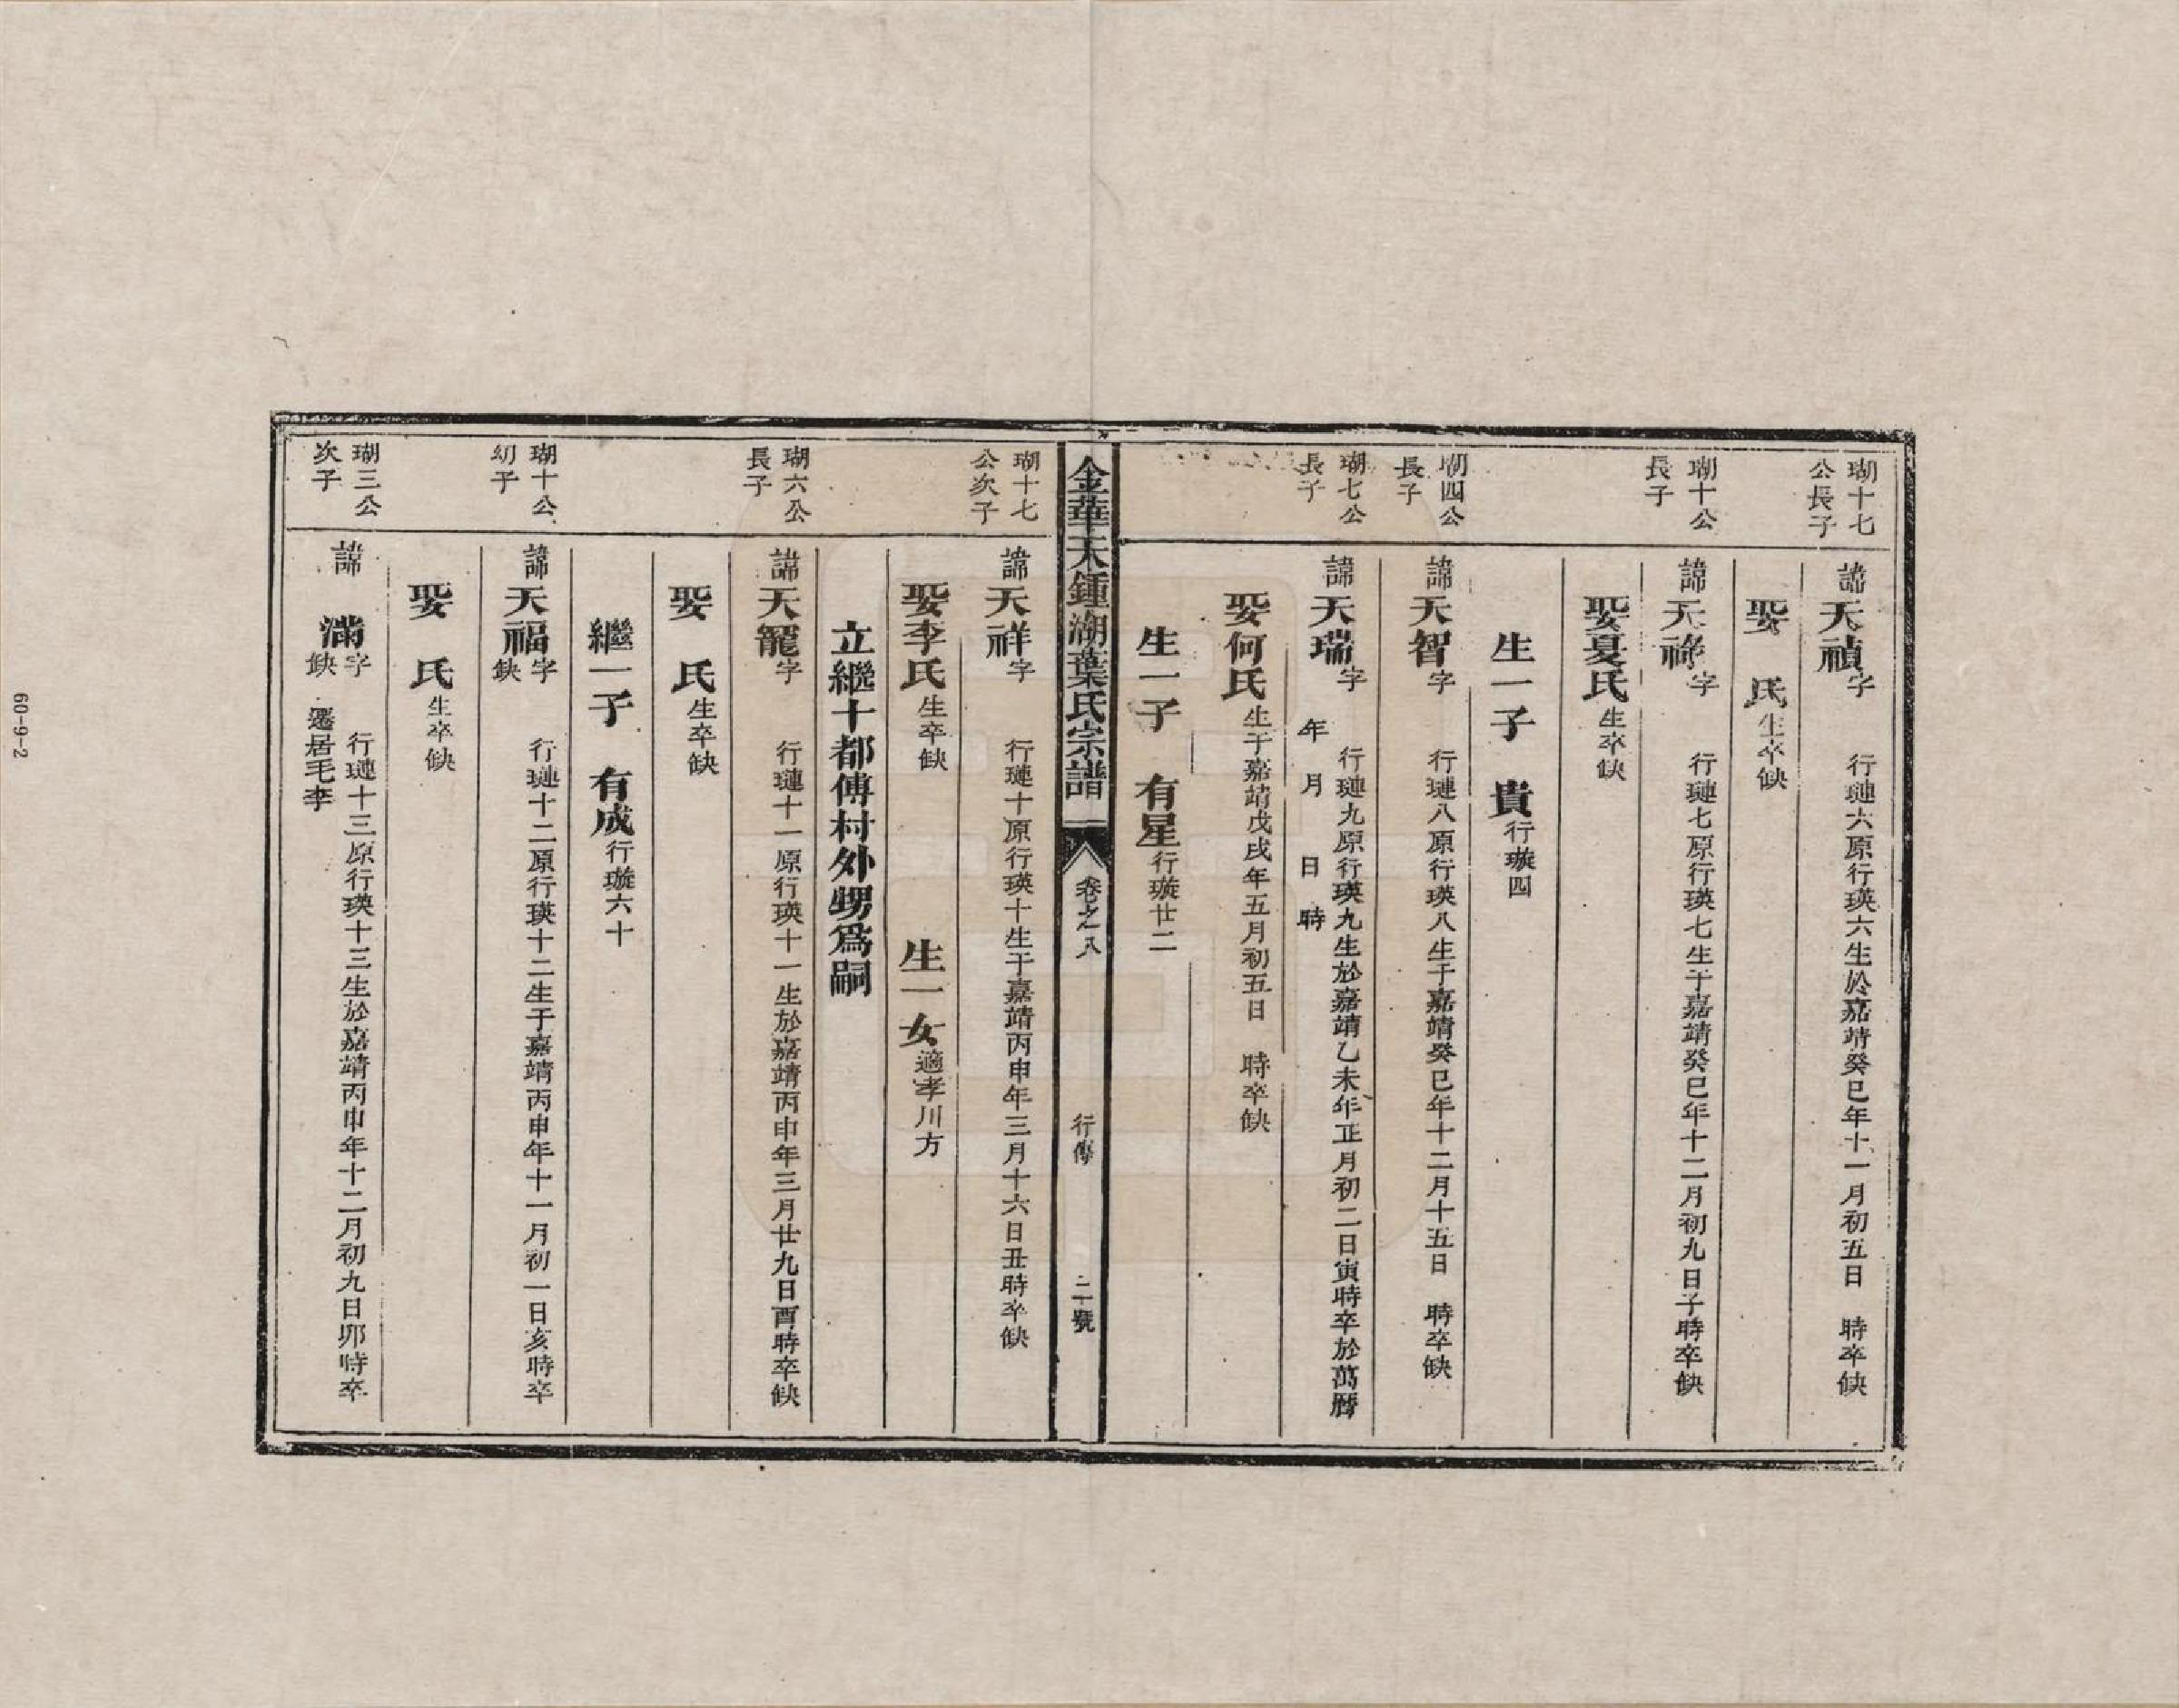 瑚十七
公長子
諱天禎字 行璉六原行瑛六生於嘉靖癸巳年十一月初五日 時卒缺
娶 氏生卒缺
瑚十公
長子
諱天祿字 行璉七原行瑛七生于嘉靖癸巳年十二月初九日子時卒缺
娶夏氏生卒缺
生一子 貴行璇四
瑚四公
長子
諱天智字 行璉八原行瑛八生于嘉靖癸巳年十二月十五日 時卒缺
瑚七公
長子
諱天瑞字 行璉九原行瑛九生於嘉靖乙未年正月初二日寅時卒於萬曆
年 月 日 時
娶何氏生于嘉靖戊戌年五月初五日 時卒缺
生一子 有星行璇廿二
金華天鍾湖葉氏宗譜 卷之八 行傳 二十號
瑚十七
公次子
諱天祥字 行璉十原行瑛十生于嘉靖丙申年三月十六日丑時卒缺
娶李氏生卒缺 生一女適孝川方
立繼十都傅村外甥爲嗣
瑚六公
長子
諱天寵字 行璉十一原行瑛十一生於嘉靖丙申年三月廿九日酉時卒缺
娶 氏生卒缺
繼一子 有成行璇六十
瑚十公
幼子
諱天福字 行璉十二原行瑛十二生于嘉靖丙申年十一月初一日亥時卒
缺
娶 氏生卒缺
瑚三公
次子
諱 滿字 行璉十三原行瑛十三生於嘉靖丙申年十二月初九日卯時卒
缺 遷居毛李
60-9-2